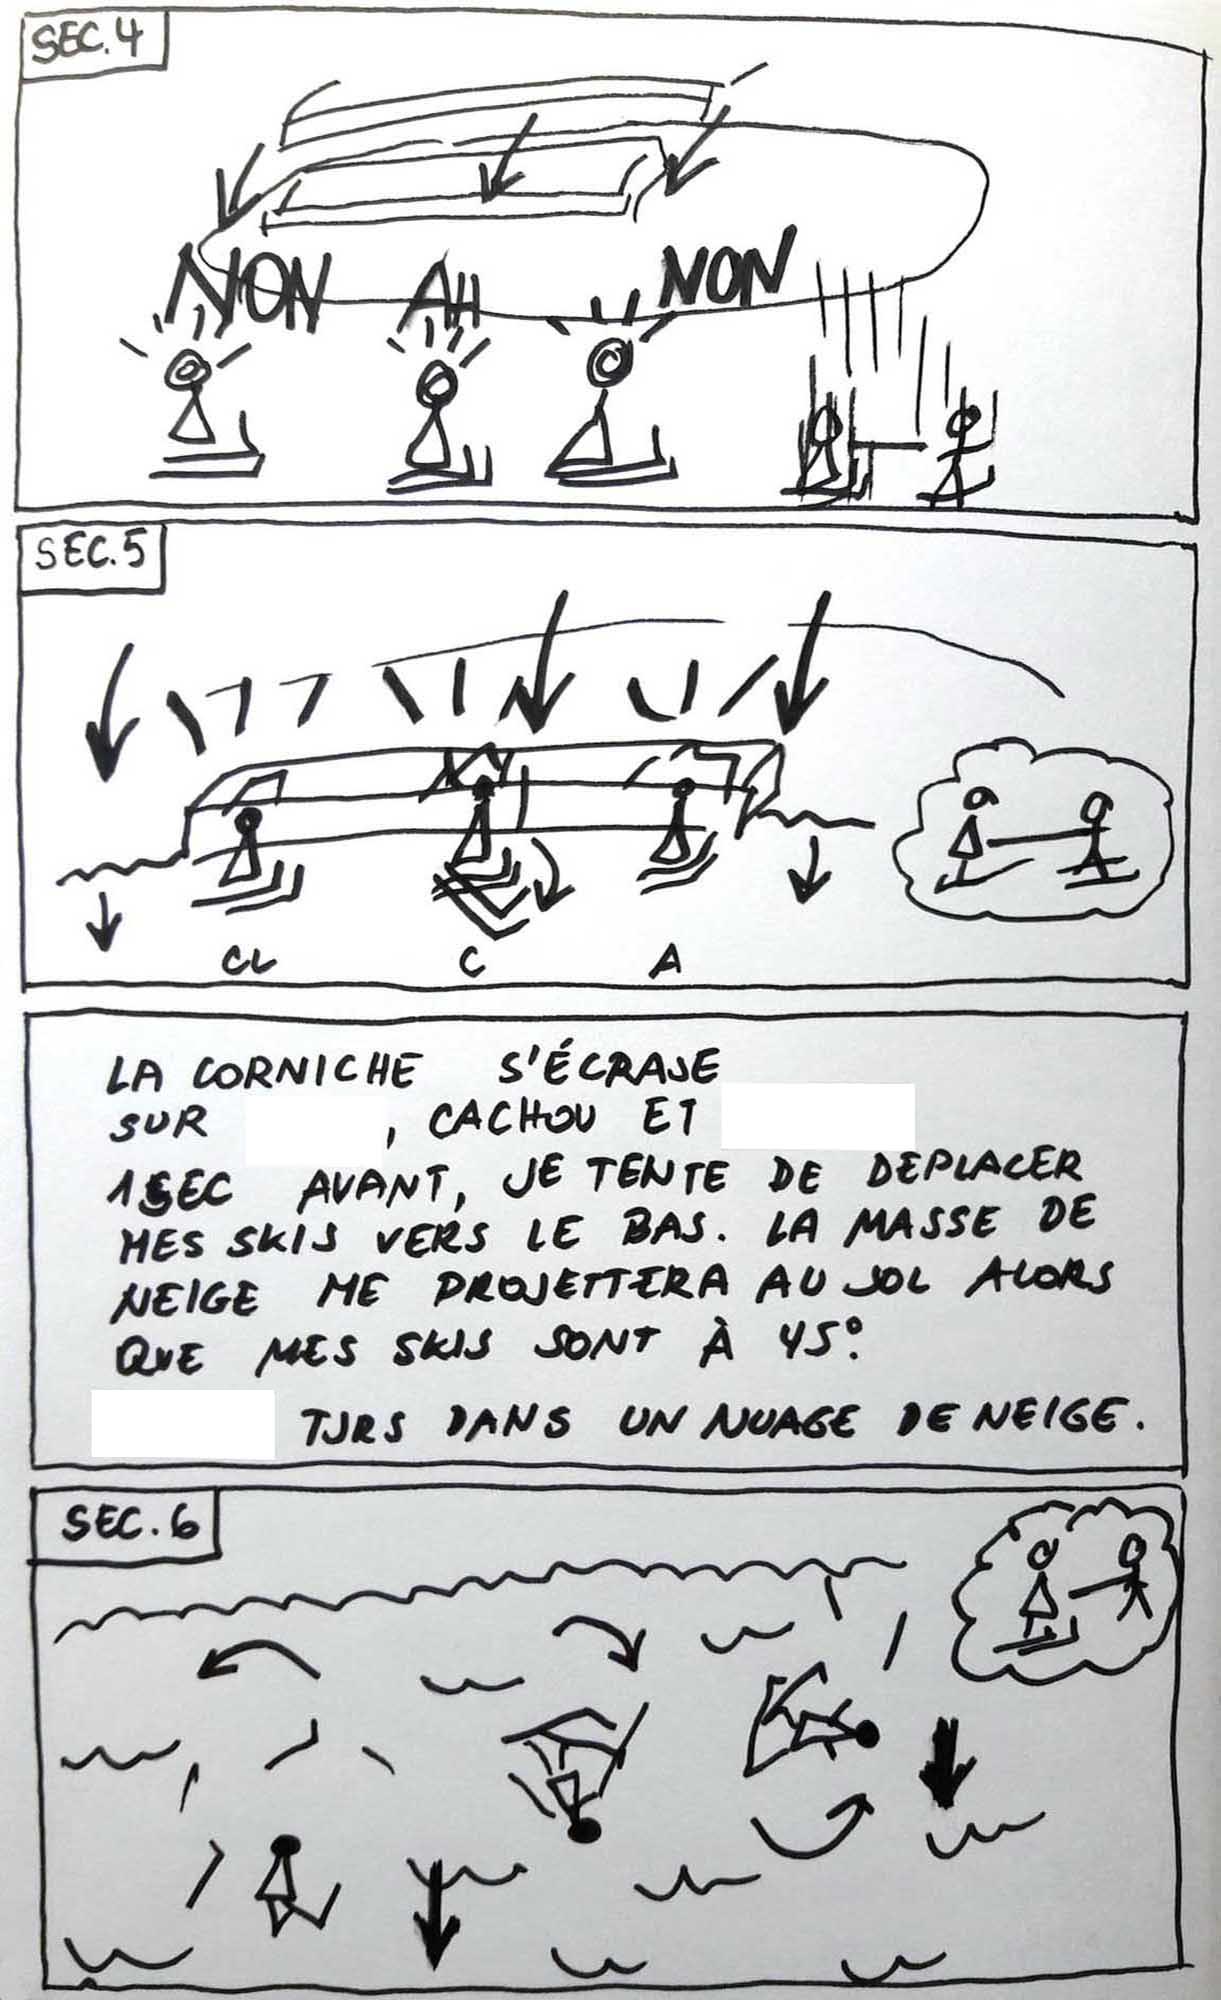 SEC.4
NON AH NON
SEC.5
CL C A
LA CORNICHE S'ÉCRASE
SUR , CACHOU ET
1SEC AVANT, JE TENTE DE DEPLACER
MES SKIS VERS LE BAS. LA MASSE DE
NEIGE ME PROJETTERA AU SOL ALORS
QUE MES SKIS SONT À 45°.
TJRS DANS UN NUAGE DE NEIGE.
SEC.6